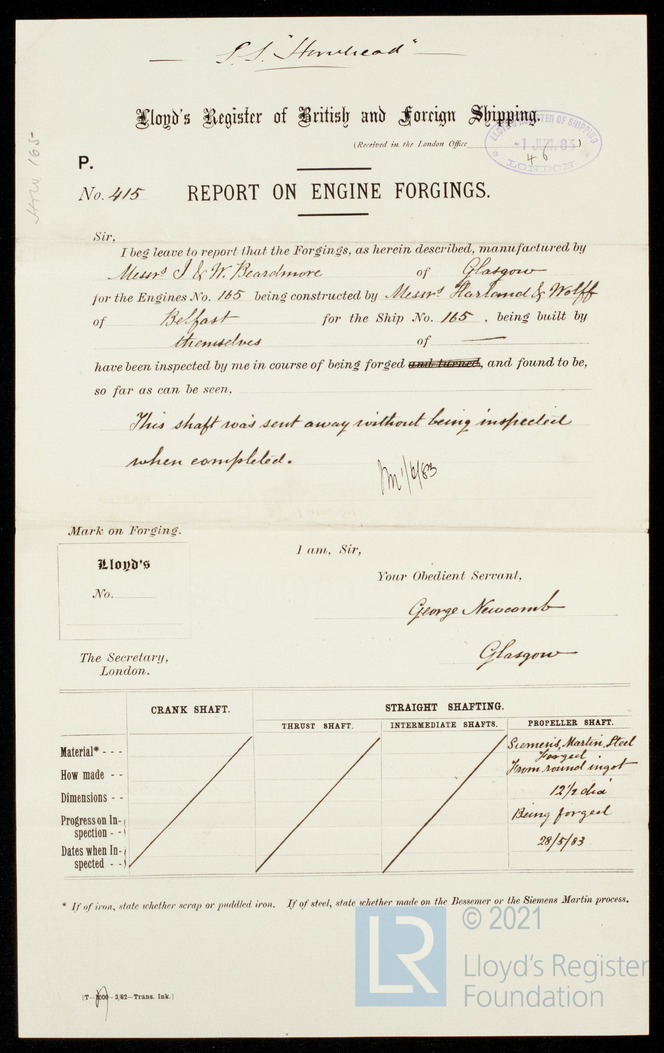 S.S. "Howhead"
Lloyd's Register of British and Foreign Shipping.
(Received in the London Office
LLOYD'S REGISTER OF SHIPPING
LONDON
165-
P.
No. 415 REPORT ON ENGINE FORGINGS.
Sir,
I beg leave to report that the Forgings, as herein described, manufactured by
Messrs I & W. Beardmore of Glasgow
for the Engines No. 165 being constructed by Messrs Harland & Wolff
of Belfast for the Ship No. 165 , being built by
themselves of —
have been inspected by me in course of being forged and turned, and found to be,
so far as can be seen,
This shaft was sent away without being inspected
when completed.
1/6/83
Mark on Forging.
Lloyd's
No.
I am, Sir,
Your Obedient Servant,
George Newcomb
Glasgow
The Secretary,
London.
CRANK SHAFT. STRAIGHT SHAFTING.
THRUST SHAFT. INTERMEDIATE SHAFTS. PROPELLER SHAFT.
Material* - - - Siemens, Martin, Steel
Forged
How made - - From round ingot
Dimensions - - 12½ dia
Progress on In-
spection - - Being forged
Dates when In-
spected - - 28/5/83
* If of iron, state whether scrap or puddled iron. If of steel, state whether made on the Bessemer or the Siemens Martin process.
(T—1000—3/82—Trans. Ink.)
LR © 2021
Lloyd's Register
Foundation